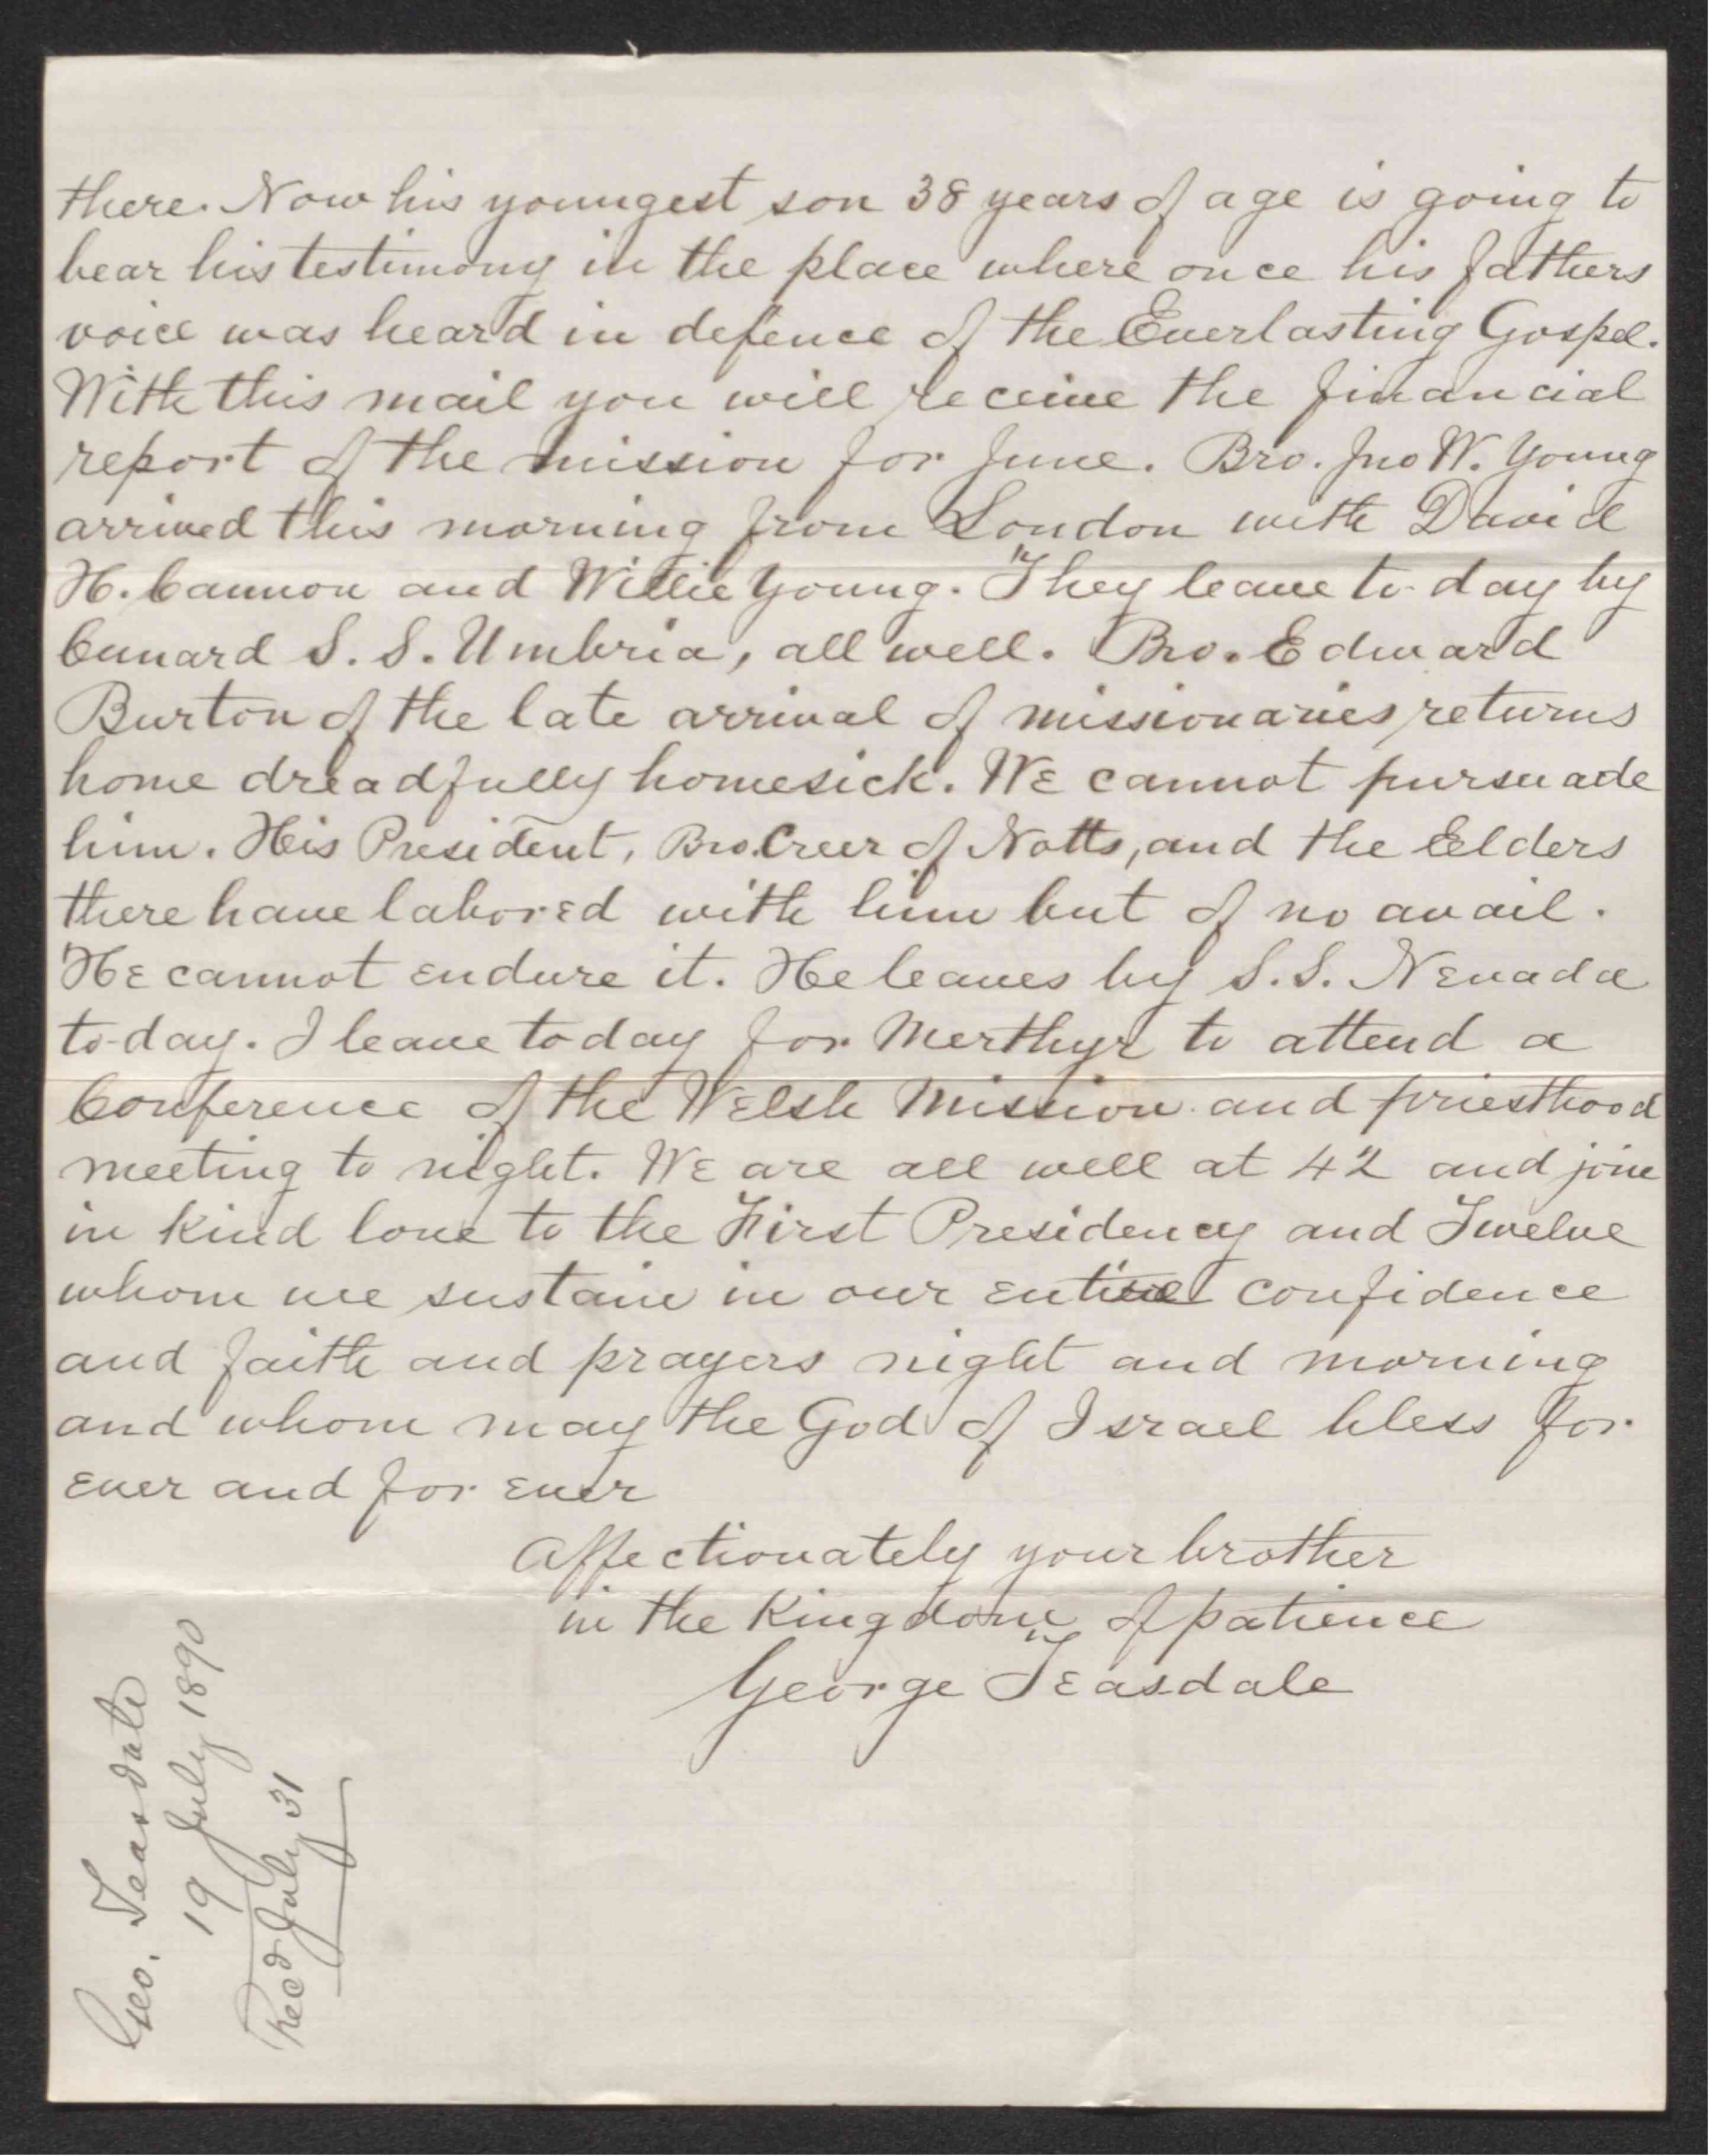 there. Now his youngest son 38 years of age is going to
bear his testimony in the place where once his fathers
voice was heard in defence of the Everlasting Gospel.
With this mail you will receive the financial
report of the mission for June. Bro. Jno W. Young
arrived this morning from London with David
H. Cannon and Willie Young. They leave to-day by
Cunard S. S. Umbria, all well. Bro. Edward
Burton of the late arrival of missionaries returns
home dreadfully homesick. We cannot pursuade
him. His President, Bro. Creer of Notts, and the Elders
there have labored with him but of no avail.
He cannot endure it. He leaves by S.S. Nevada
to-day. I leave today for Merthyr to attend a
Conference of the Welsh Mission and priesthood
meeting to night. We are all well at 42 and join
in kind love to the First Presidency and Twelve
whom we sustain in our entire confidence
and faith and prayers night and morning
and whom may the God of Israel bless for
ever and for ever
Affectionately your brother
in the Kingdom of patience
George Teasdale
Geo. Teasdale
19 July 1890
Recd July 31